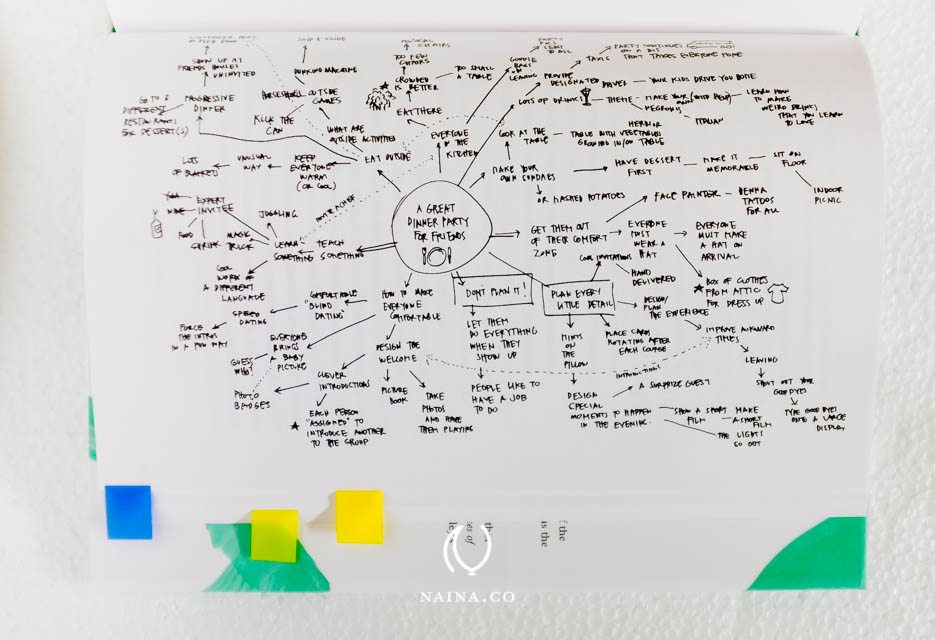 SHOW UP AT
FRIENDS HOUSE!
UNINVITED
PROGRESSIVE
DINNER
GO TO 3
DIFFERENT
RESTAURANTS
FOR DESSERT
MUSICAL
CHAIRS
TOO FEW
CHAIRS
CROWDED
IS BETTER
TOO SMALL
A TABLE
EAT HERE
HORSESHOES
OUTSIDE
GAMES
KICK THE
CAN
WHAT ARE
OUTSIDE ACTIVITIES
EAT OUTSIDE
EVERYONE
IN THE
KITCHEN
PARTY
SENT
TO ALL
LEAVING
TAXIS
PARTY CONTINUES
ON A BUS
THAT TAKES EVERYONE HOME
PROVIDE
DESIGNATED DRIVER
YOUR KIDS DRIVE YOU HOME
LOTS OF DRINKS
THEME
MAKE YOUR OWN
NEGRONIS
ITALIAN
LEARN HOW
TO MAKE
WEIRD DRINKS
THAT YOU LEARN
TO LOVE
LOOK AT THE
TABLE
TABLE WITH VEGETABLES
GROWING IN/ON TABLE
MAKE YOUR
OWN SUNDAES
OR MASHED POTATOES
HAVE DESSERT
FIRST
MAKE IT
MEMORABLE
SIT ON
FLOOR
INDOOR
PICNIC
LOTS
OF BLANKETS
UNUSUAL
WAY
KEEP
EVERYONE
WARM
(OR COOL)
EXPERT
INVITEE
WINE
FOOD
JUGGLING
MAGIC
TRICK
LEARN
SOMETHING
TEACH
SOMETHING
COOL
WORDS OF
A DIFFERENT
LANGUAGE
A GREAT
DINNER PARTY
FOR FRIENDS
GET THEM OUT
OF THEIR COMFORT
ZONE
FACE PAINTER
HENNA
TATOOS
FOR ALL
EVERYONE
MUST
WEAR A
HAT
EVERYONE
MUST MAKE
A HAT ON
ARRIVAL
BOX OF CLOTHES
FROM ATTIC
FOR DRESS UP
COOL INVITATIONS
HAND
DELIVERED
DESIGN/
PLAN
THE EXPERIENCE
DON'T PLAN IT!
PLAN EVERY
LITTLE DETAIL
LET THEM
DO EVERYTHING
WHEN THEY
SHOW UP
PEOPLE LIKE TO
HAVE A JOB
TO DO
MINTS
ON
THE
PILLOW
PLACE CARDS
ROTATING AFTER
EACH COURSE
IMPROVE AWKWARD
TIMES
LEAVING
SHOUT OUT YOUR
GOODBYES
TYPE GOODBYES
ONTO A LARGE
DISPLAY
INTRODUCTIONS
A SURPRISE GUEST
DESIGN
SPECIAL
MOMENTS TO HAPPEN
IN THE EVENING
THE LIGHTS
GO OUT
MAKE
A SHORT
FILM
HOW TO MAKE
EVERYONE
COMFORTABLE
COMFORTABLE
"BLIND
DATING"
SPEED
DATING
FORCE
THE INTROS
IN A FUN WAY
EVERYONE
BRINGS
A BABY
PICTURE
GUESS
WHO?
PHOTO
BADGES
DESIGN THE
WELCOME
CLEVER
INTRODUCTIONS
EACH PERSON
"ASSIGNED" TO
INTRODUCE ANOTHER
TO THE GROUP
PICTURE
BOOK
TAKE
PHOTOS
AND HAVE
THEM PLAYING
f the
is the
NAINA.CO